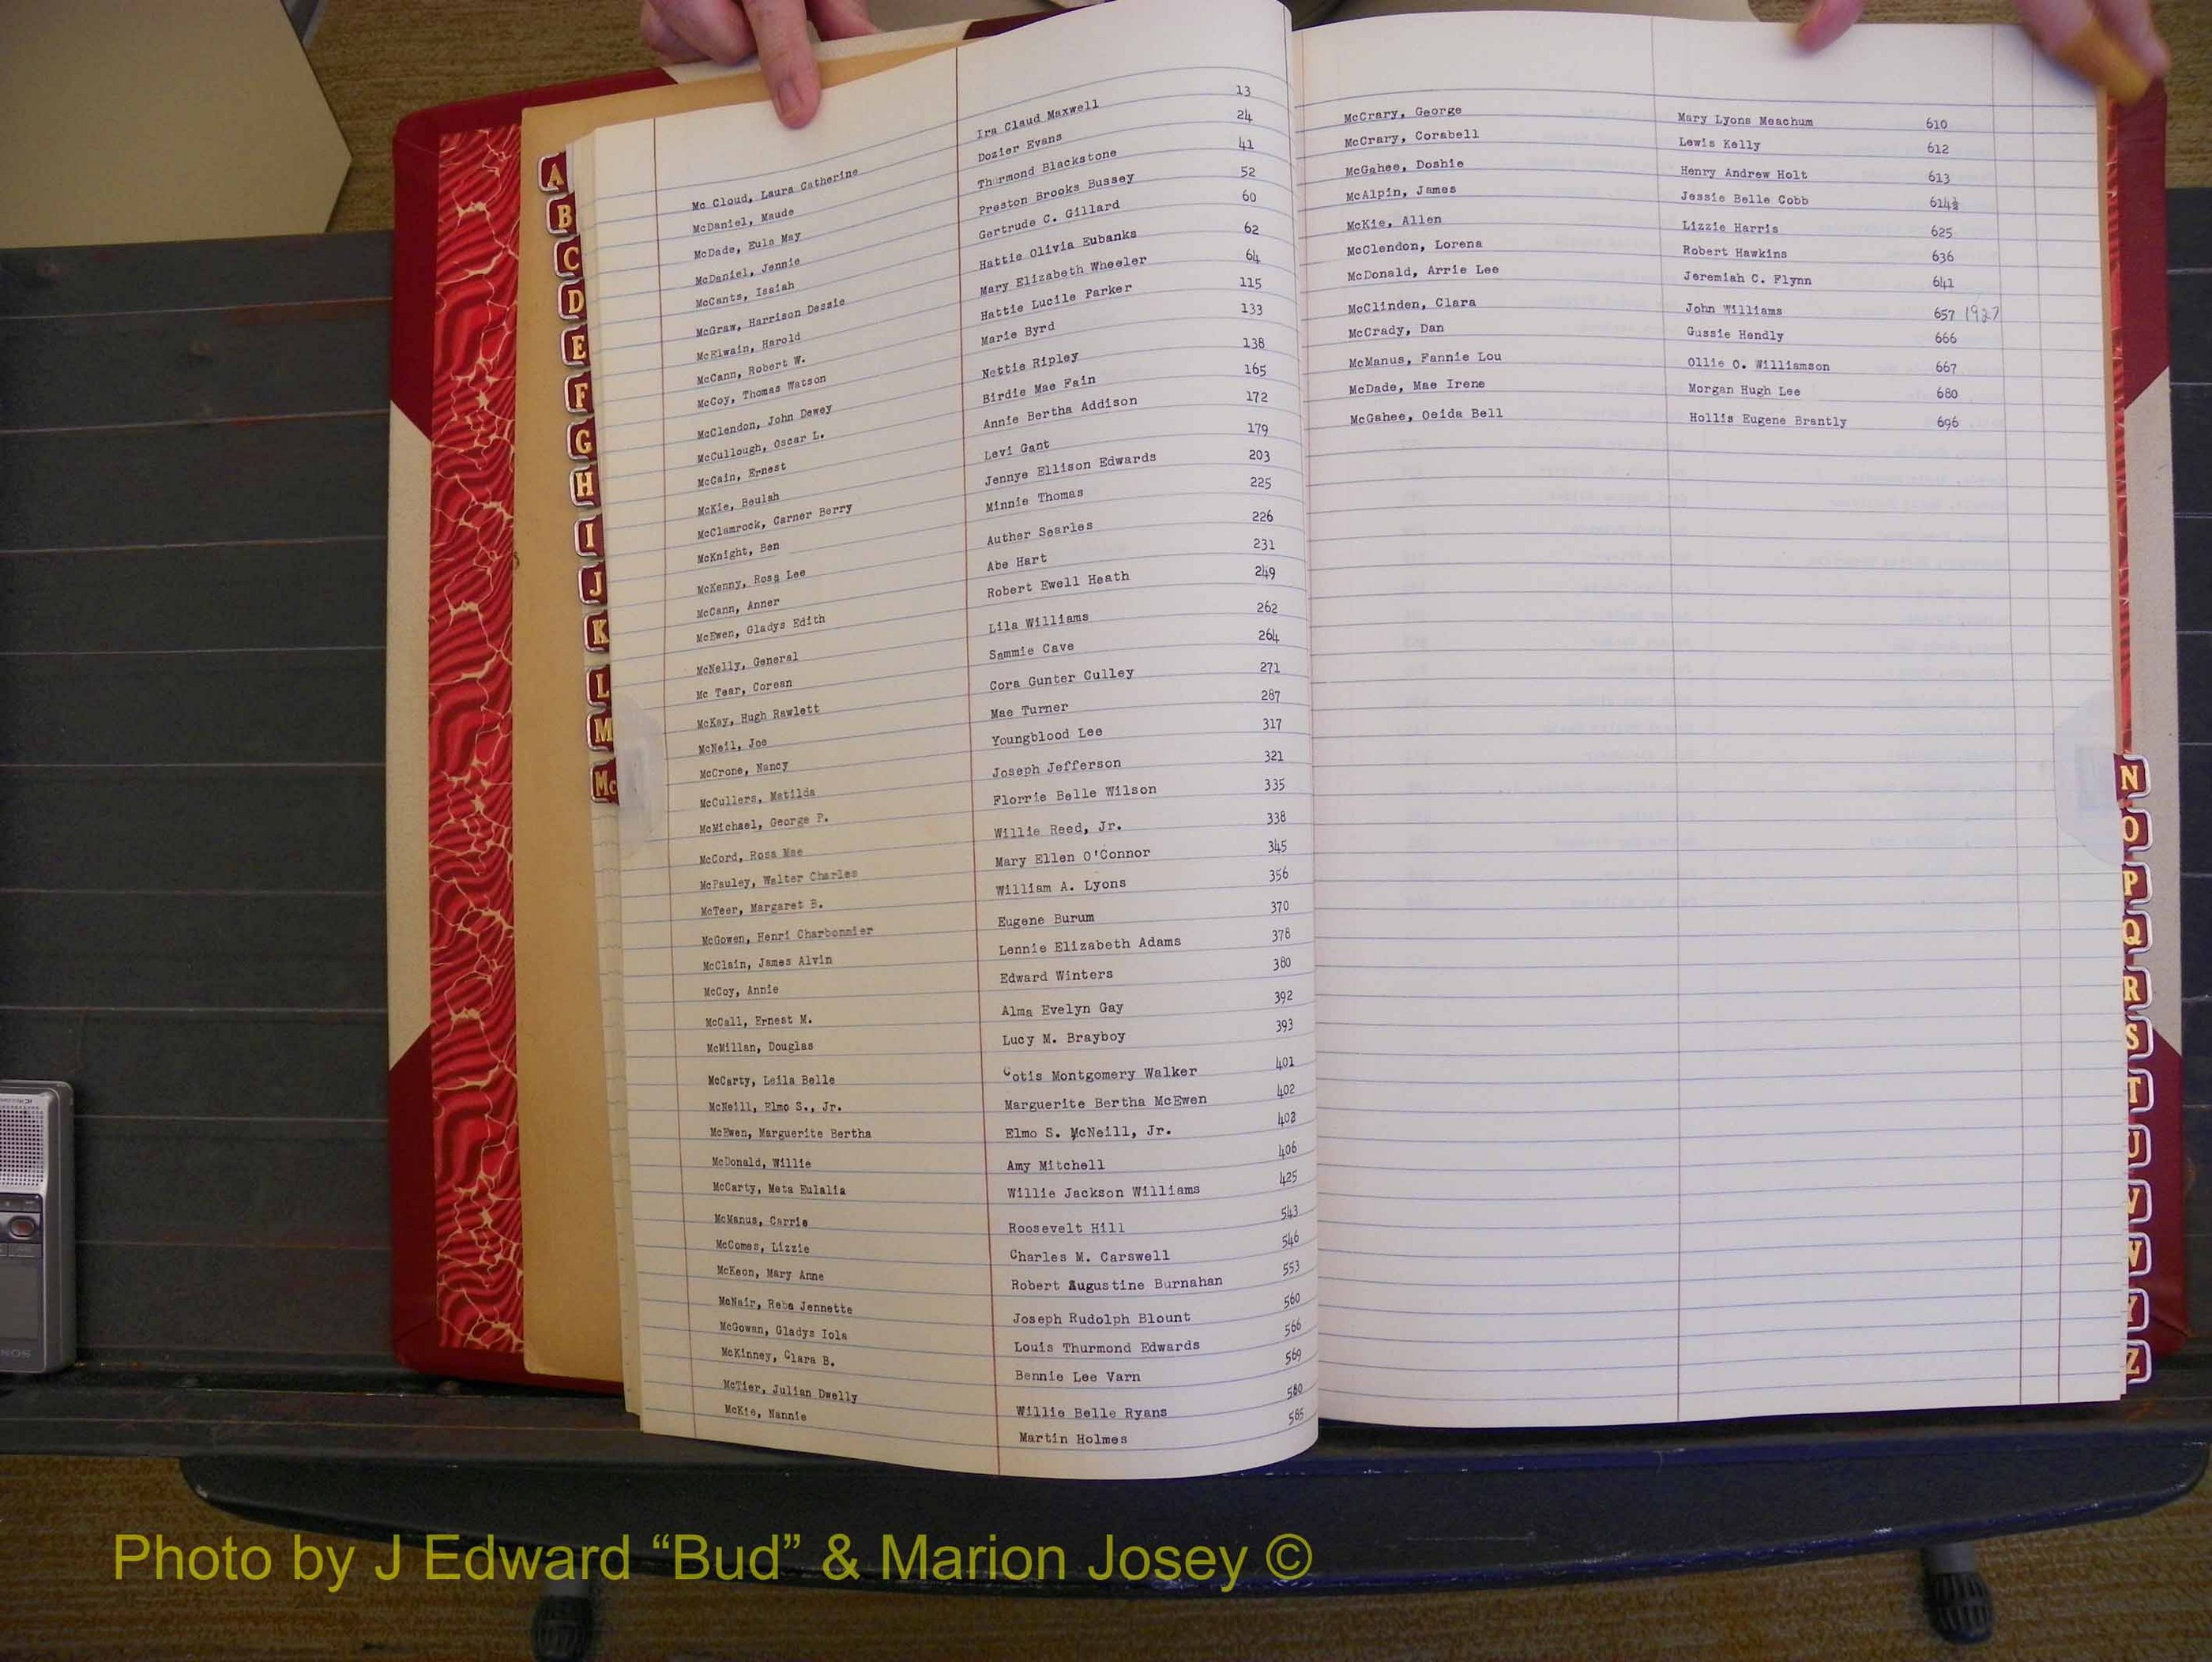 Mc Cloud, Laura Catherine Ira Claud Maxwell 13
McDaniel, Maude Dozier Evans 24
McDade, Eula May Thurmond Blackstone 41
McDaniel, Jennie Preston Brooks Bussey 52
McCants, Isaiah Gertrude C. Gillard 60
McGraw, Harrison Dessie Hattie Olivia Eubanks 62
McElwain, Harold Mary Elizabeth Wheeler 64
McCann, Robert W. Hattie Lucile Parker 115
McCoy, Thomas Watson Marie Byrd 133
McClendon, John Dewey Nettie Ripley 138
McCullough, Oscar L. Birdie Mae Fain 165
McCain, Ernest Annie Bertha Addison 172
McKie, Beulah Levi Gant 179
McClamrock, Carner Berry Jennye Ellison Edwards 203
McKnight, Ben Minnie Thomas 225
McKenny, Rosa Lee Auther Searles 226
McCann, Anner Abe Hart 231
McEwen, Gladys Edith Robert Ewell Heath 249
McNelly, General Lila Williams 262
Mc Tear, Corean Sammie Cave 264
McKay, Hugh Rawlett Cora Gunter Culley 271
McNeil, Joe Mae Turner 287
McCrone, Nancy Youngblood Lee 317
McCullers, Matilda Joseph Jefferson 321
McMichael, George P. Florrie Belle Wilson 335
McCord, Rosa Mae Willie Reed, Jr. 338
McPauley, Walter Charles Mary Ellen O'Connor 345
McTeer, Margaret B. William A. Lyons 356
McGowen, Henri Charbonnier Eugene Burum 370
McClain, James Alvin Lennie Elizabeth Adams 378
McCoy, Annie Edward Winters 380
McCall, Ernest M. Alma Evelyn Gay 392
McMillan, Douglas Lucy M. Brayboy 393
McCarty, Leila Belle Cotis Montgomery Walker 401
McNeill, Elmo S., Jr. Marguerite Bertha McEwen 402
McEwen, Marguerite Bertha Elmo S. McNeill, Jr. 402
McDonald, Willie Amy Mitchell 406
McCarty, Meta Eulalia Willie Jackson Williams 425
McManus, Carrie Roosevelt Hill 543
McComes, Lizzie Charles M. Carswell 546
McKeon, Mary Anne Robert Augustine Burnahan 553
McNair, Reba Jennette Joseph Rudolph Blount 560
McGowan, Gladys Iola Louis Thurmond Edwards 566
McKinney, Clara B. Bennie Lee Varn 569
McTier, Julian Dwelly Willie Belle Ryans 580
McKie, Nannie Martin Holmes 585
McCrary, George Mary Lyons Meachum 610
McCrary, Corabell Lewis Kelly 612
McGahee, Doshie Henry Andrew Holt 613
McAlpin, James Jessie Belle Cobb 614½
McKie, Allen Lizzie Harris 625
McClendon, Lorena Robert Hawkins 636
McDonald, Arrie Lee Jeremiah C. Flynn 641
McClinden, Clara John Williams 657 1927
McCrady, Dan Gussie Hendly 666
McManus, Fannie Lou Ollie O. Williamson 667
McDade, Mae Irene Morgan Hugh Lee 680
McGahee, Oeida Bell Hollis Eugene Brantly 696
A
B
C
D
E
F
G
H
I
J
K
L
M
Mc
N
O
P
Q
R
S
T
U
V
W
Y
Z
Photo by J Edward “Bud” & Marion Josey ©